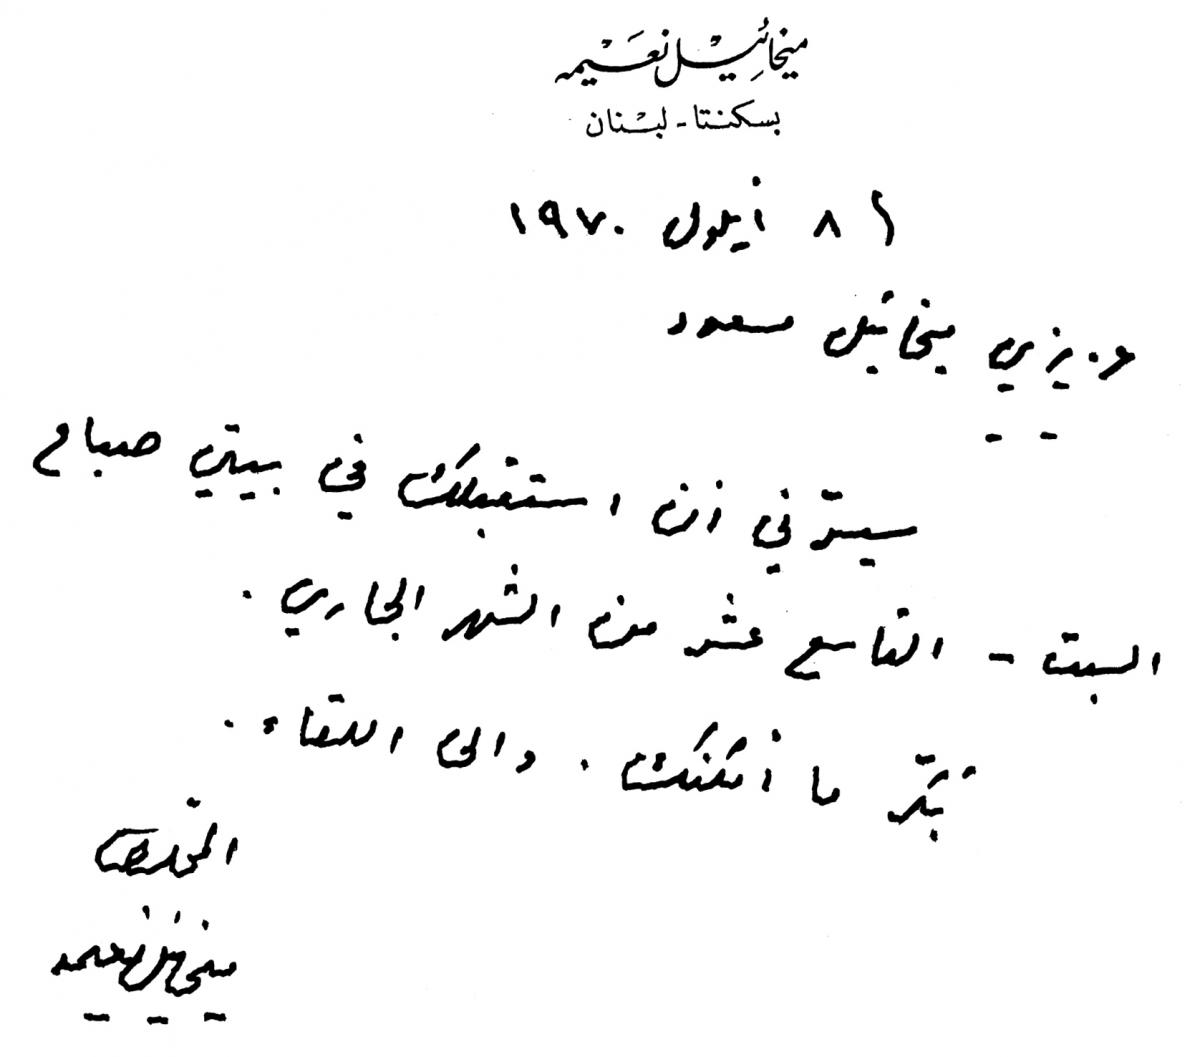 ميخائيل نعيمه
بسكنتا - لبنان
٨ أيلول ١٩٧٠
عزيزي ميخائيل مسعود
سيسرّني أن استقبلك في بيتي صباح
السبت - التاسع عشر من الشهر الجاري .
بَكّر ما أمكنك . والى اللقاء .
المخلص
ميخائيل نعيمه